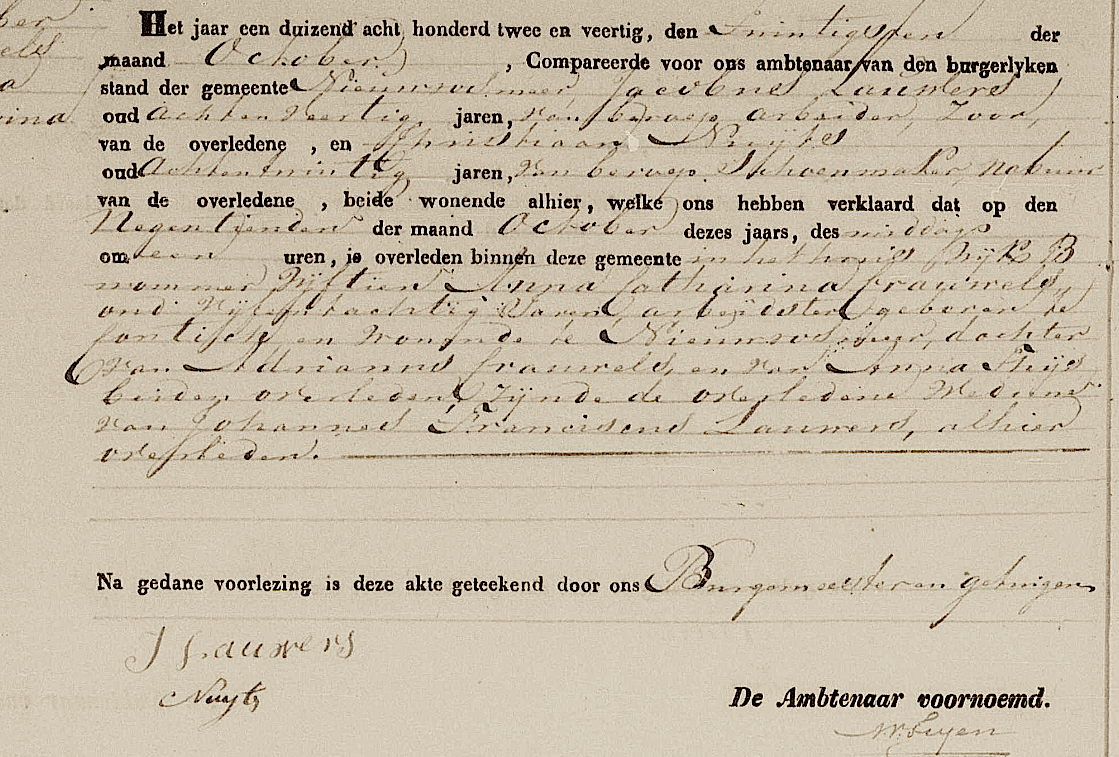 Het jaar een duizend acht honderd twee en veertig, den Twintigsten der
maand October, Compareerde voor ons ambtenaar van den burgerlyken
stand der gemeente Nieuwmoer, Jacobus Lauwers
oud Achtenveertig jaren, van beroep arbeider, Zoon,
van de overledene, en Christiaan Nuyts
oud Achtentwintig jaren, van beroep Schoenmaker, nabuur
van de overledene, beide wonende alhier, welke ons hebben verklaard dat op den
Negentienden der maand October dezes jaars, des middags
om een uren, is overleden binnen deze gemeente in het huis Wyk B
nommer Vyftien Anna Catharina Crauwels,
oud Vyfentachtig Jaren, arbeidster geboren te
en wonende te dochter
van Adrianus Crauwels, en van Anna Thys
beiden overleden, Zijnde de overledene Weduwe
van Johannes Franciscus Lauwers, alhier
overleden.
Na gedane voorlezing is deze akte geteekend door ons Burgemeester en getuigen
J Lauwers
Nuyts
De Ambtenaar voornoemd.